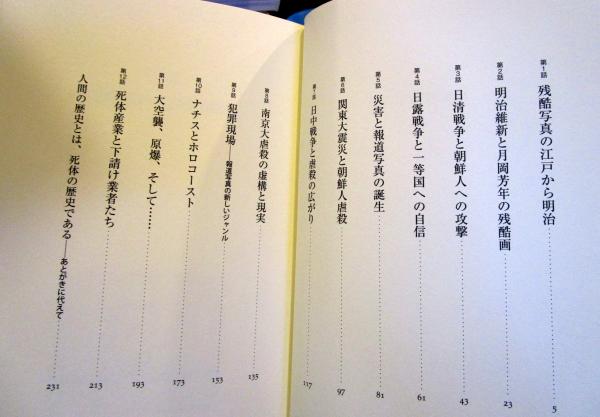 第1話 残酷写真の江戸から明治 5
第2話 明治維新と月岡芳年の残酷画 23
第3話 日清戦争と朝鮮人への攻撃 43
第4話 日露戦争と一等国への自信 61
第5話 災害と報道写真の誕生 81
第6話 関東大震災と朝鮮人虐殺 97
第7話 日中戦争と虐殺の広がり 117
第8話 南京大虐殺の虚構と現実 135
第9話 犯罪現場——報道写真の新しいジャンル 153
第10話 ナチスとホロコースト 173
第11話 大空襲、原爆、そして…… 193
第12話 死体産業と下請け業者たち 213
人間の歴史とは、死体の歴史である——あとがきに代えて 231